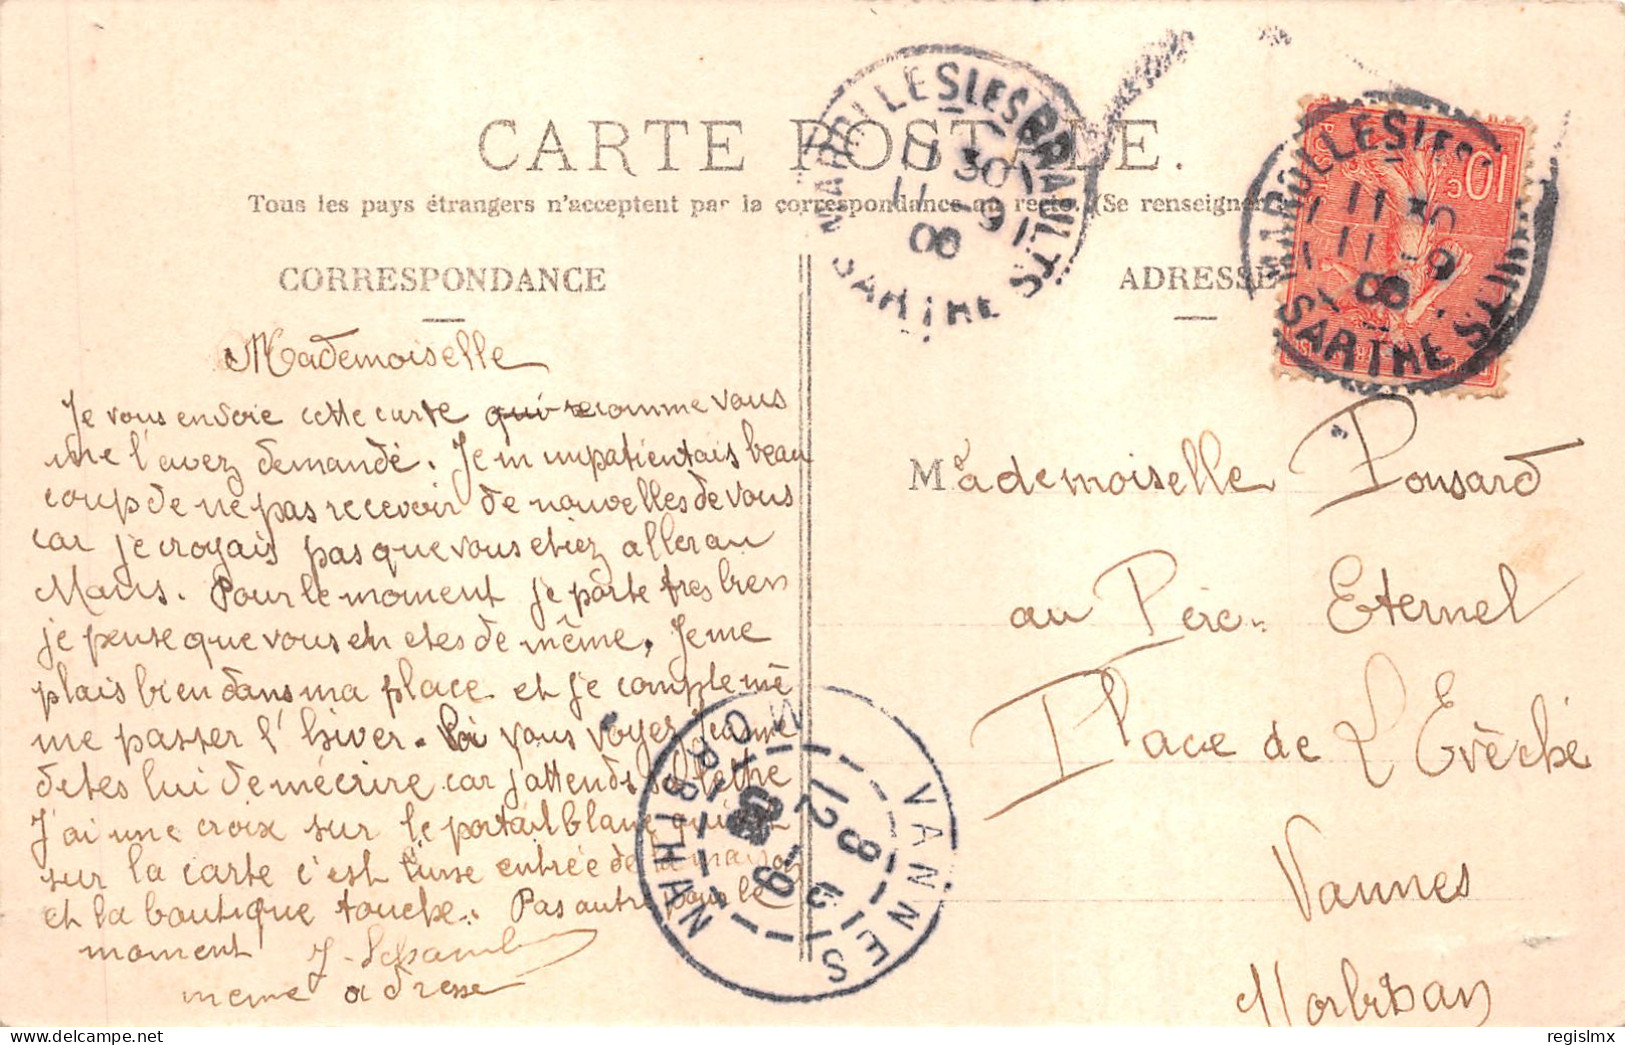 CARTE POSTALE.
Tous les pays étrangers n'acceptent par la correspondance au recto. (Se renseigner
CORRESPONDANCE
ADRESSE
MAROLLES LES BRAULTS
11 30
11 - 9
08
SARTHE
MAROLLES LES BRAULTS
11 30
11 - 9
08
SARTHE
10c
Mademoiselle
Je vous envoie cette carte qui re comme vous
me l'avez demandé. Je m'impatientais beau
coup de ne pas recevoir de nouvelles de vous
car je croyais pas que vous etiez aller au
Mans. Pour le moment je porte tres bien
je pense que vous en etes de même. Je me
plais bien dans ma place et je compte mê
me passer l'hiver. Si vous voyez Jeanne
detes lui de mécrire car j'attends sa lettre
J'ai une croix sur le portail blanc qui est
sur la carte c'est l'une entrée de la maison
et la boutique touche. Pas autre pour le
moment J.
meme adresse
Mademoiselle Ponsard
au Père Eternel
Place de L'Evêché
Vannes
Morbihan
VANNES
MORBIHAN
regislmx